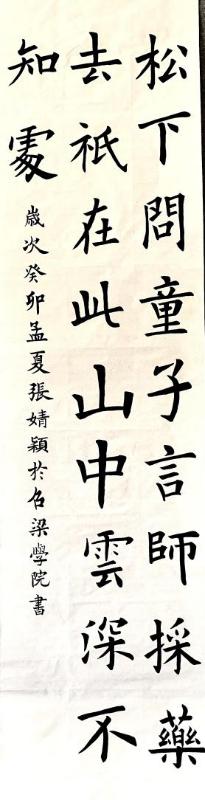 松下問童子言師採藥
去祇在此山中雲深不
知處
歲次癸卯孟夏張婧穎於呂梁學院書